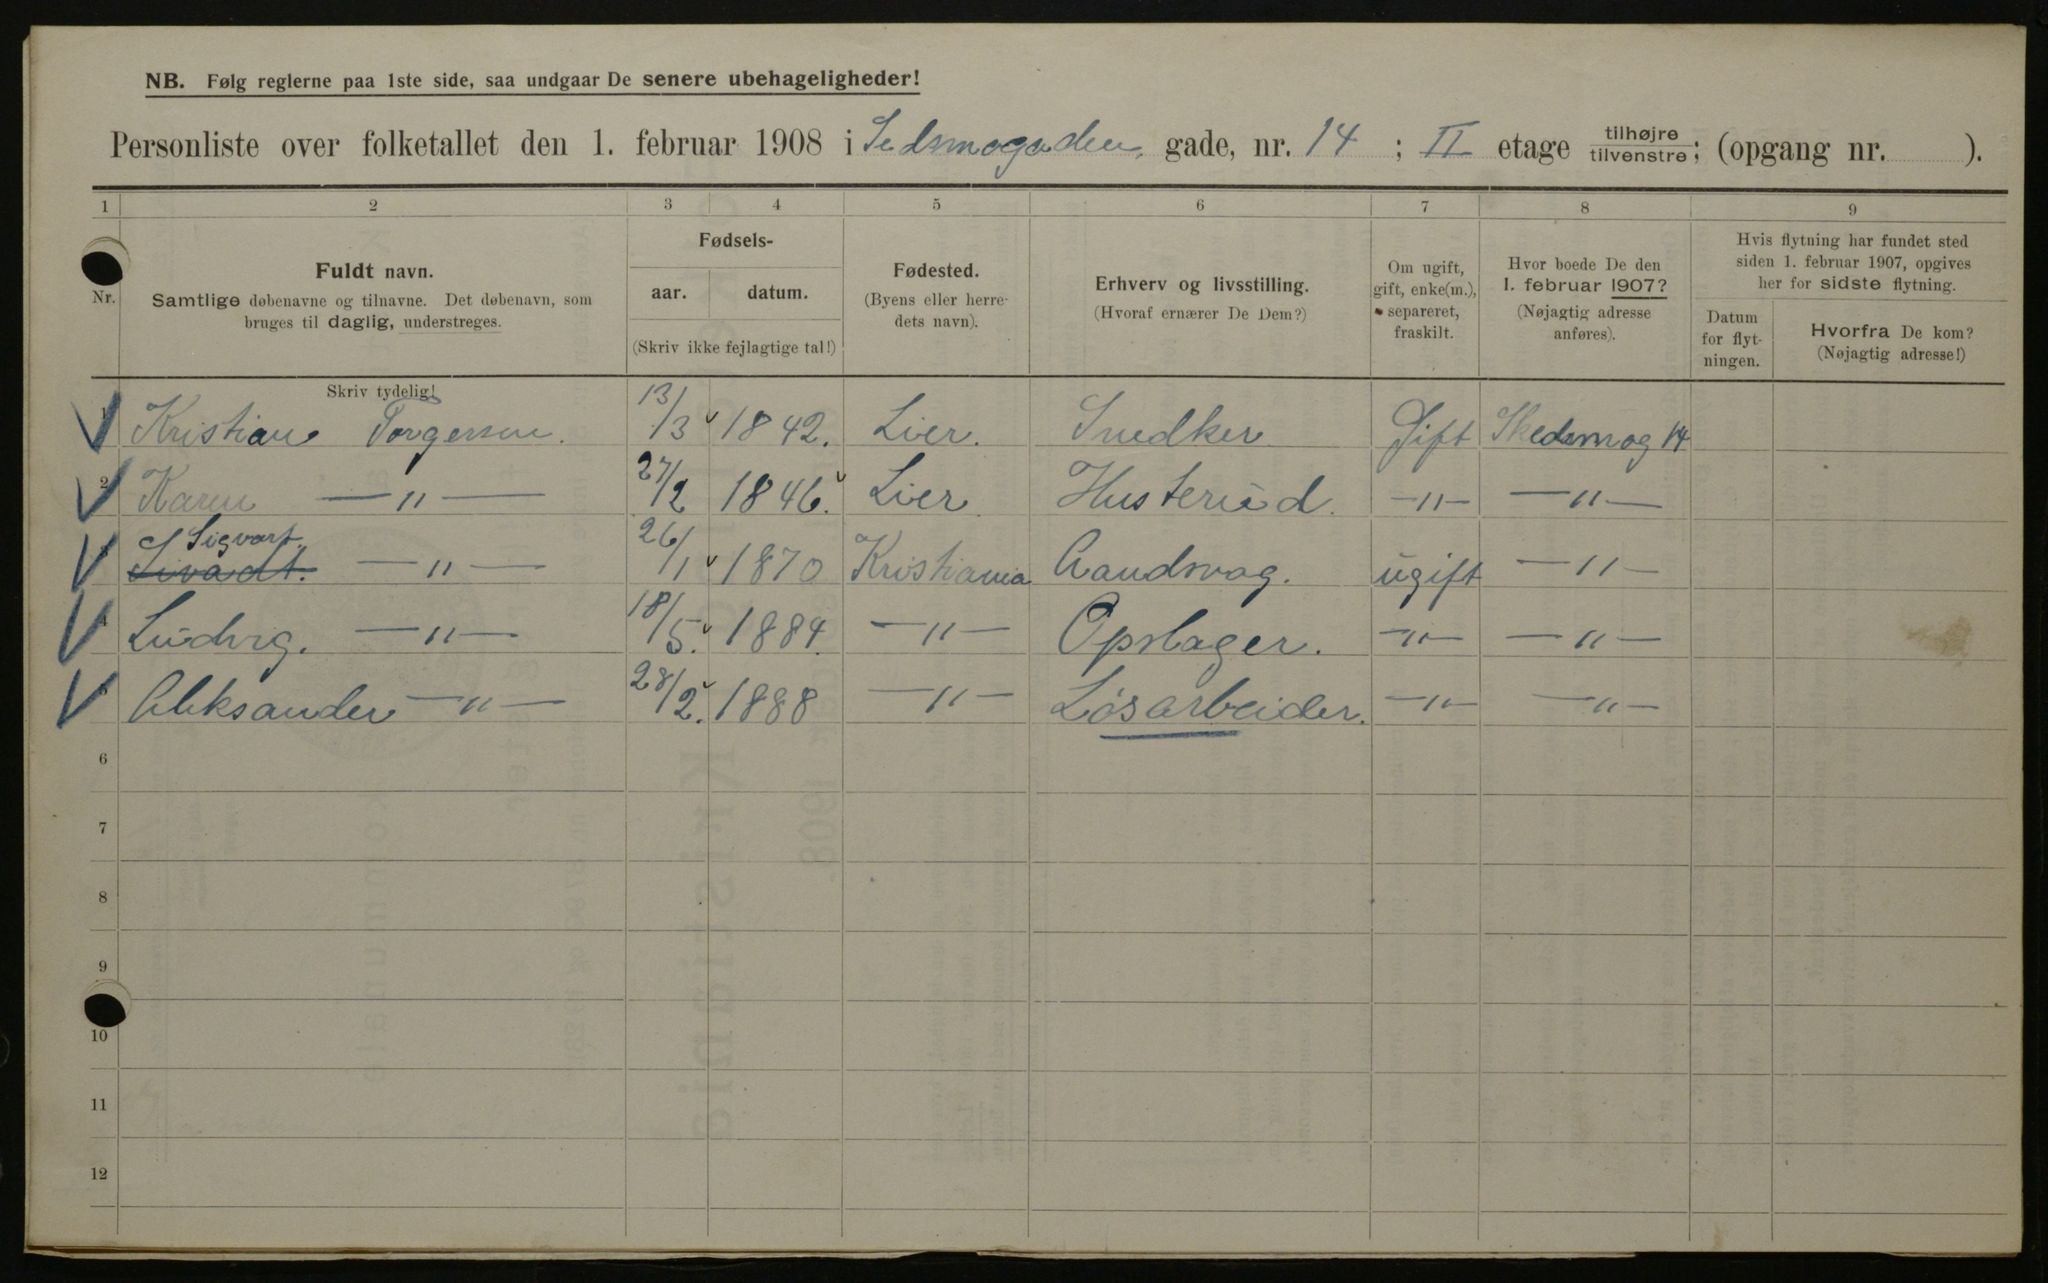 NB. Følg reglerne paa 1ste side, saa undgaar De senere ubehageligheder!
Personliste over folketallet den 1. februar 1908 i Sedsmogaden, gade, nr. 14 ; II etage tilhøjre tilvenstre; (opgang nr. ).
1 2 3 4 5 6 7 8 9
Nr.
Fuldt navn.
Samtlige døbenavne og tilnavne. Det døbenavn, som
bruges til daglig, understreges.
Skriv tydelig!
Fødsels-
aar. datum.
(Skriv ikke fejlagtige tal!)
Fødested.
(Byens eller herre-
dets navn).
Erhverv og livsstilling.
(Hvoraf ernærer De Dem?)
Om ugift,
gift, enke(m.),
separeret,
fraskilt.
Hvor boede De den
1. februar 1907?
(Nøjagtig adresse
anføres).
Hvis flytning har fundet sted
siden 1. februar 1907, opgives
her for sidste flytning.
Datum
for flyt-
ningen.
Hvorfra De kom?
(Nøjagtig adresse!)
1 Kristian Torgersen. 13/3 1842. Lier. Snedker Gift Skedsmog 14
2 Karen —"— 27/2 1846. Lier. Husterud. —"— —"—
Sigvart.
—"— 26/1 1870 Kristiania ugift —"—
4 Ludvig. —"— 18/5. 1884. —"— Opslager. —"— —"—
5 Aleksander —"— 28/2. 1888 —"— Løsarbeider. —"— —"—
6
7
8
9
10
11
12